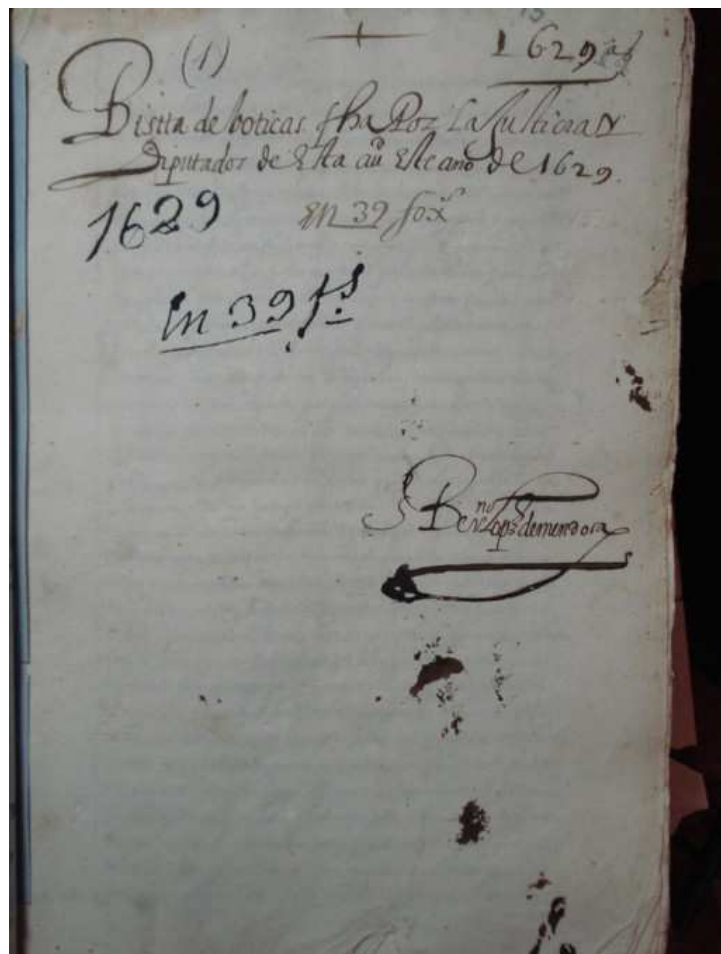 (1) 1629
Bisita de boticas fha Por La Justicia Y
Diputados de Esta ciu Este año de 1629
1629 En 39 fox
En 39 fs
Lopz de mendoza